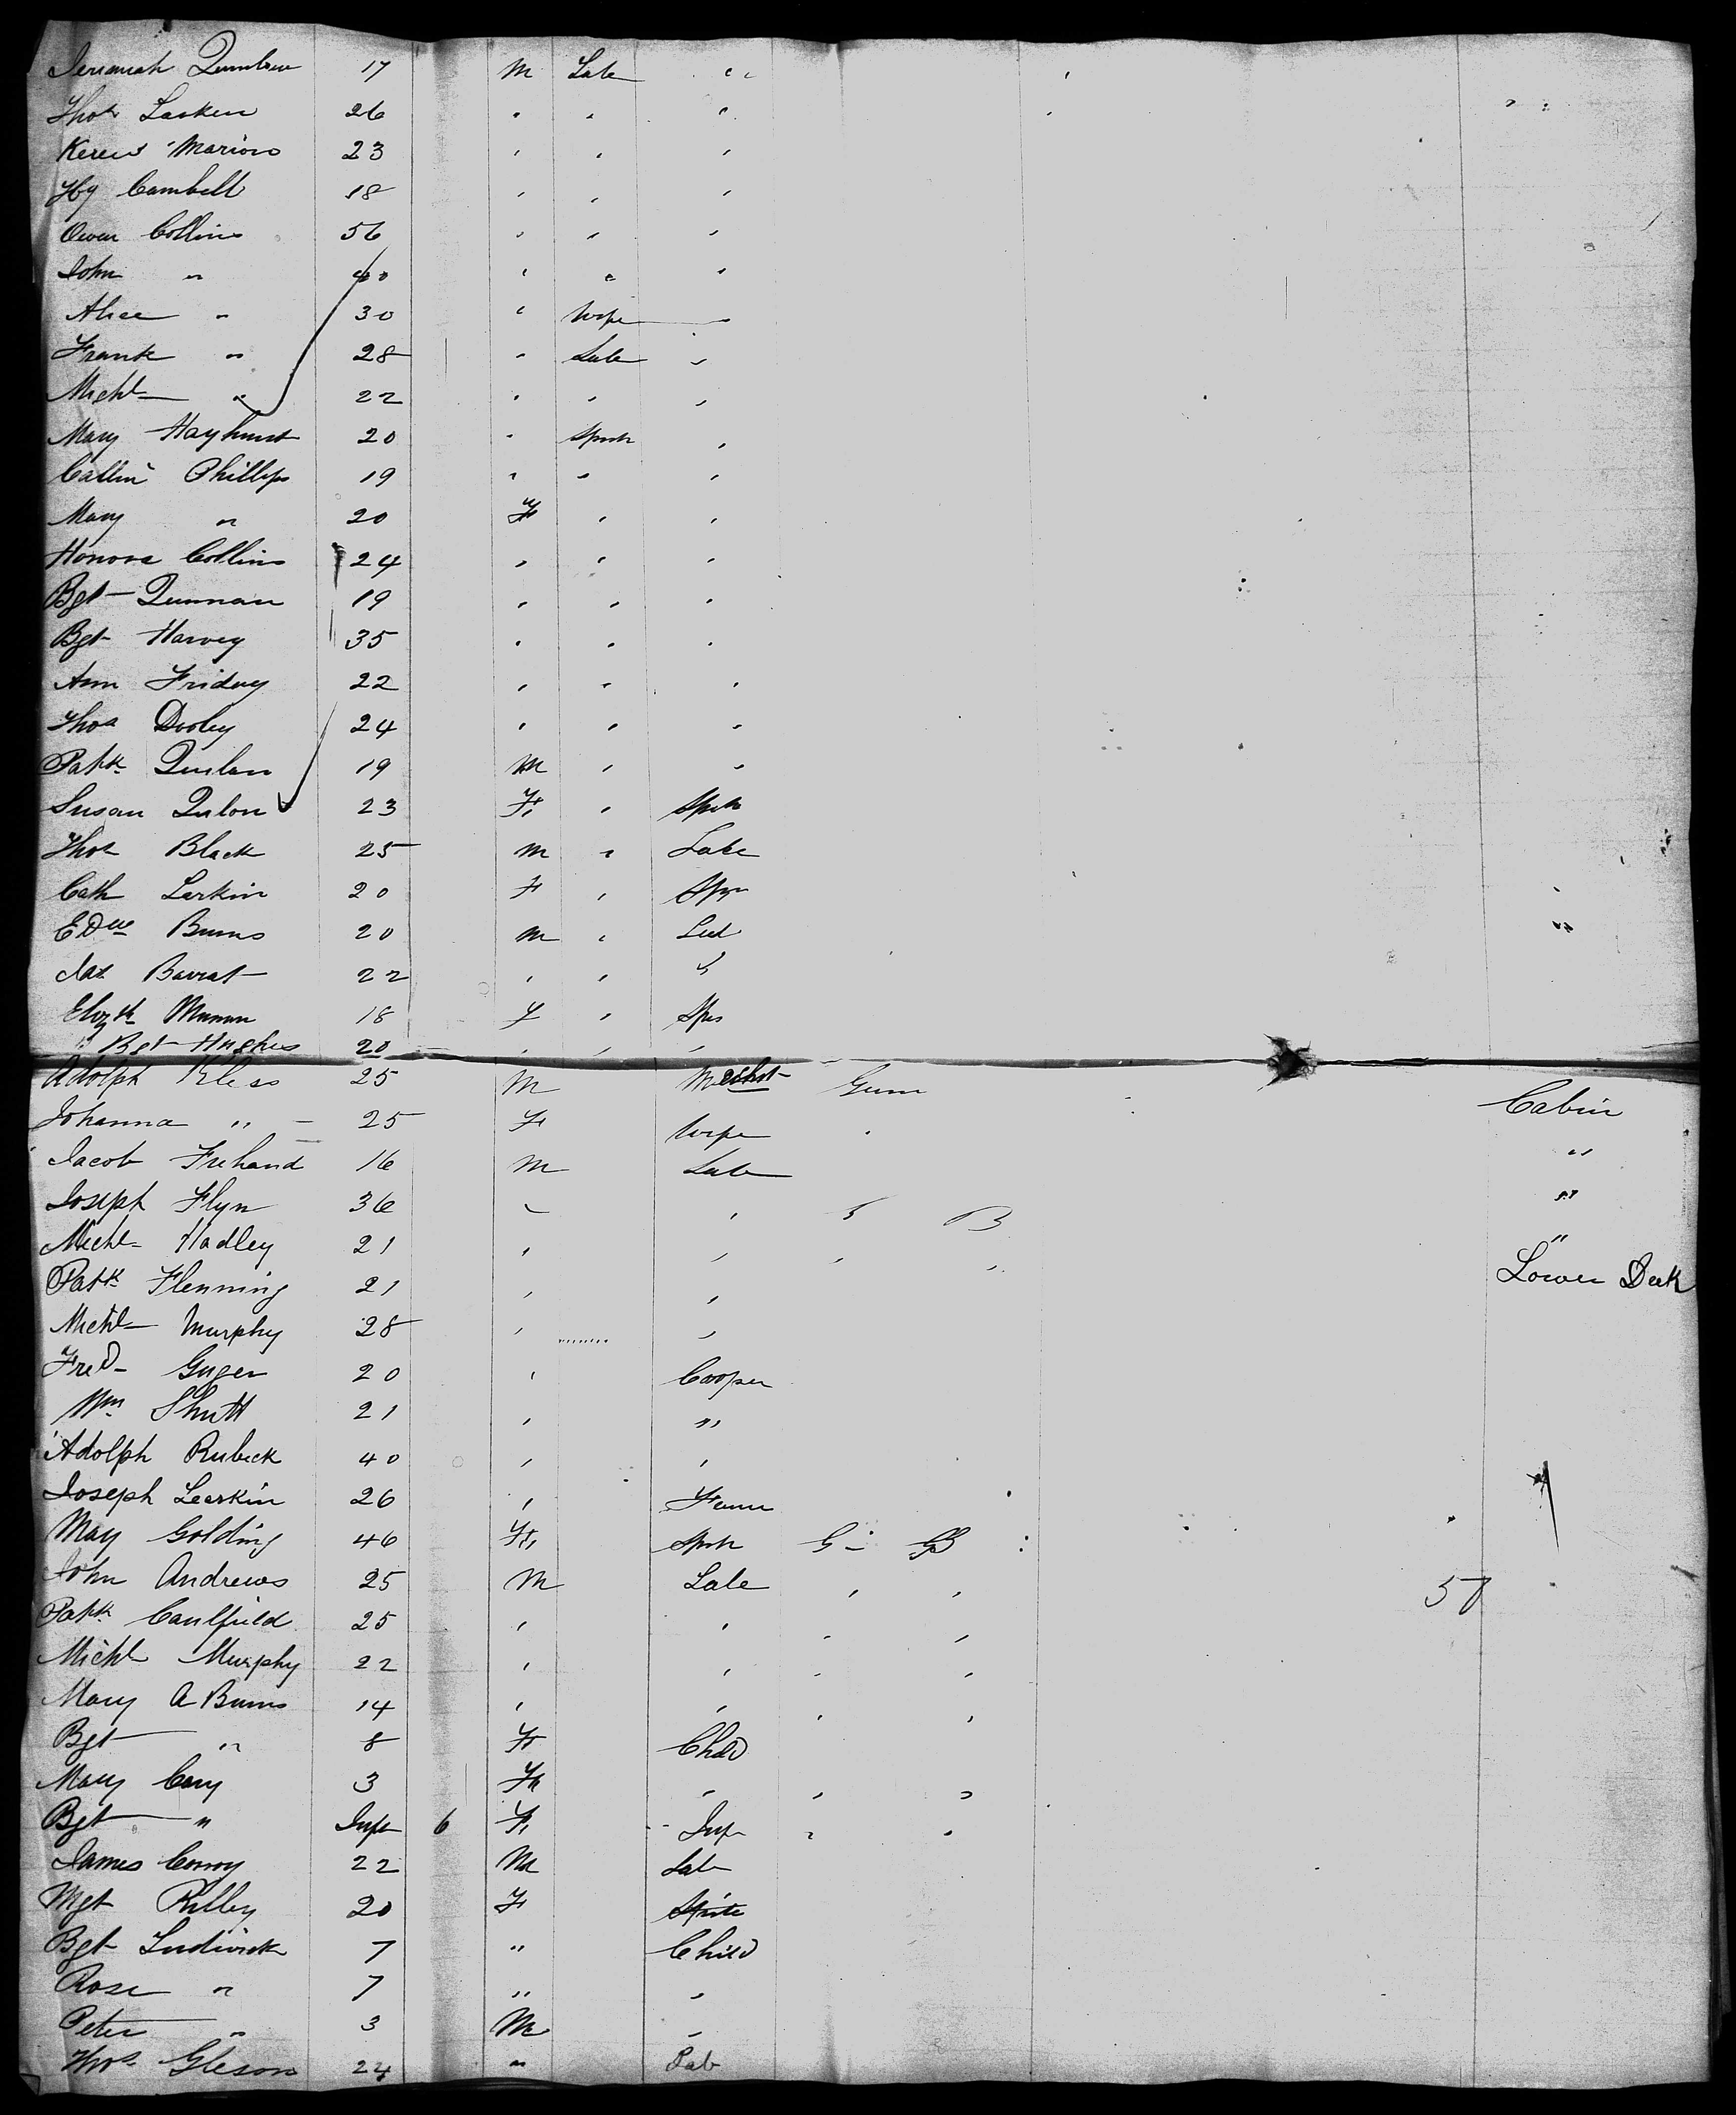 Jeremiah Quinlan 17 M Labr " "
Thos Larken 26 " " "
Keren Marion 23 " " "
Hy Cambell 18 " " "
Owen Collins 56 " " "
John " 40 " " "
Alice " 30 " Wife "
Frank " 28 " Labr "
Michl " 22 " " "
Mary Hayhurst 20 " Spstr "
Callin Phillips 19 " " "
Mary " 20 F " "
Honora Collins 24 " " "
Bgt Quinnan 19 " " "
Bgt Harvey 35 " " "
Ann Friday 22 " " "
Thos Dooley 24 " " "
Patk Quilan 19 M " "
Susan Qulon 23 F " Spstr
Thos Black 25 M " Labr
Cath Larkin 20 F " Spr
Edw Burns 20 M "
Jas Barrat 22 " " "
Elizth 18 F " Spr
" Bgt Hughes 20 " " "
Adolph Kless 25 M Mechst Germ Cabin
Johanna " 25 F Wife " "
Jacob Frehand 16 M Labr "
Joseph Flyn 36 " " G B "
Michl Hadley 21 " " " " Lower Deck
Patk Flemming 21 " "
Michl Murphy 28 " "
Fred Guger 20 " Cooper
Wm Shutt 21 " "
Adolph Rubeck 40 " "
Joseph Learkin 26 " Farmr
May Golding 46 F Spstr G B
John Andrews 25 M Labr " " 50
Patk Caulfield 25 " " " "
Michl Murphy 22 " " " "
Mary A Burns 14 " " " "
Bgt " 8 F Child
Mary Cary 3 F " " "
Bgt " Inft 6 F Inf " "
James Conroy 22 M Labr
Mgt Rilley 20 F
Bgt Ludwick 7 " Child
Rose " 7 " "
Peter " 3 M "
Thos Gleson 24 " Lab